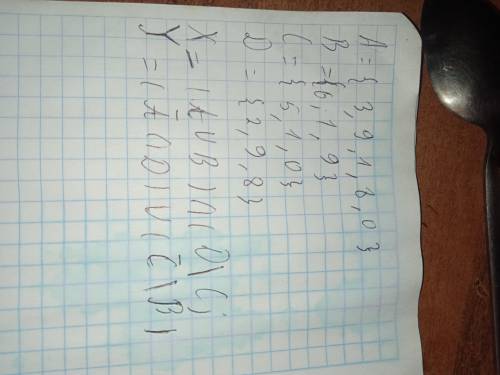 A = { 3, 9, 1, 8, 0 }
B = { 6, 1, 9 }
C = { 5, 1, 0 }
D = { 2, 9, 8 }
X = (A ∪ B) ∩ ( D \ C )
Y = (Ā ∩ D) ∪ ( C̄ \ B )